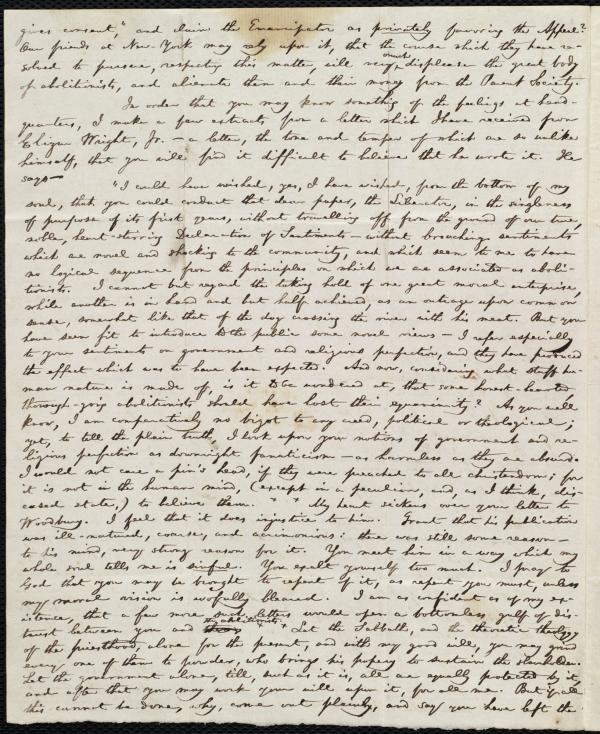 gives consent," and claim the Emancipator as privately favoring the Appeal?
Our friends at New-York may rely upon it, that the course which they have re-
solved to pursue, respecting this matter, will very much displease the great body
of abolitionists, and alienate them and their money from the Parent Society.
In order that you may know something of the feelings at head-
quarters, I make a few extracts from a letter which I have received from
Elizur Wright, Jr. — a letter, the tone and temper of which are so unlike
himself, that you will find it difficult to believe that he wrote it. He
says—
"I could have wished, yes, I have wished, from the bottom of my
soul, that you could conduct that dear paper, the Liberator, in the singleness
of purpose of its first years, without travelling off from the ground of our true,
noble, heart-stirring Declaration of Sentiments — without broaching sentiments
which are novel and shocking to the community, and which seem to me to have
no logical sequence from the principles on which we are associated as aboli-
tionists. I cannot but regard the taking hold of one great moral enterprise,
while another is in hand and but half achieved, as an outrage upon common
sense, somewhat like that of the dog crossing the river with his meat. But you
have seen fit to introduce to the public some novel views — I refer especially
to your sentiments on government and religious perfection, and they have produced
the effect which was to have been expected. And now, considering what stuff hu-
man nature is made of, is it to be wondered at, that some honest-hearted,
thorough-going abolitionists should have lost their equanimity? As you well
know, I am comparatively no bigot to any creed, political or theological;
yet, to tell the plain truth, I look upon your notions of government and re-
ligious perfection as downright fanaticism — as harmless as they are absurd.
I would not care a pin's head, if they were preached to all christendom; for
it is not in the human mind, (except in a peculiar, and, as I think, dis-
eased state,) to believe them. * * My heart sickens over your letter to
Woodbury. I feel that it does injustice to him. Grant that his publication
was ill-natured, coarse, and acrimonious: there was still some reason—
to his mind, very strong reason for it. You meet him in a way which my
whole soul tells me is sinful. You exalt yourself too much. I pray to
God that you may be brought to repent of it, as repent you must, unless
my moral vision is wofully bleared. I am as confident as of my ex-
istence, that a few more such letters would open a bottomless gulf of dis-
trust between you and the abolitionists. * Let the Sabbath, and the theoretic theology
of the priesthood, alone for the present, and with my good will, you may grind
every one of them to powder, who brings his popery to sustain the slaveholder.
Let the government alone, till, such as it is, all are equally protected by it,
and after that you may work your will upon it, for all me. But if all
this cannot be done, why, come out plainly, and say you have left the